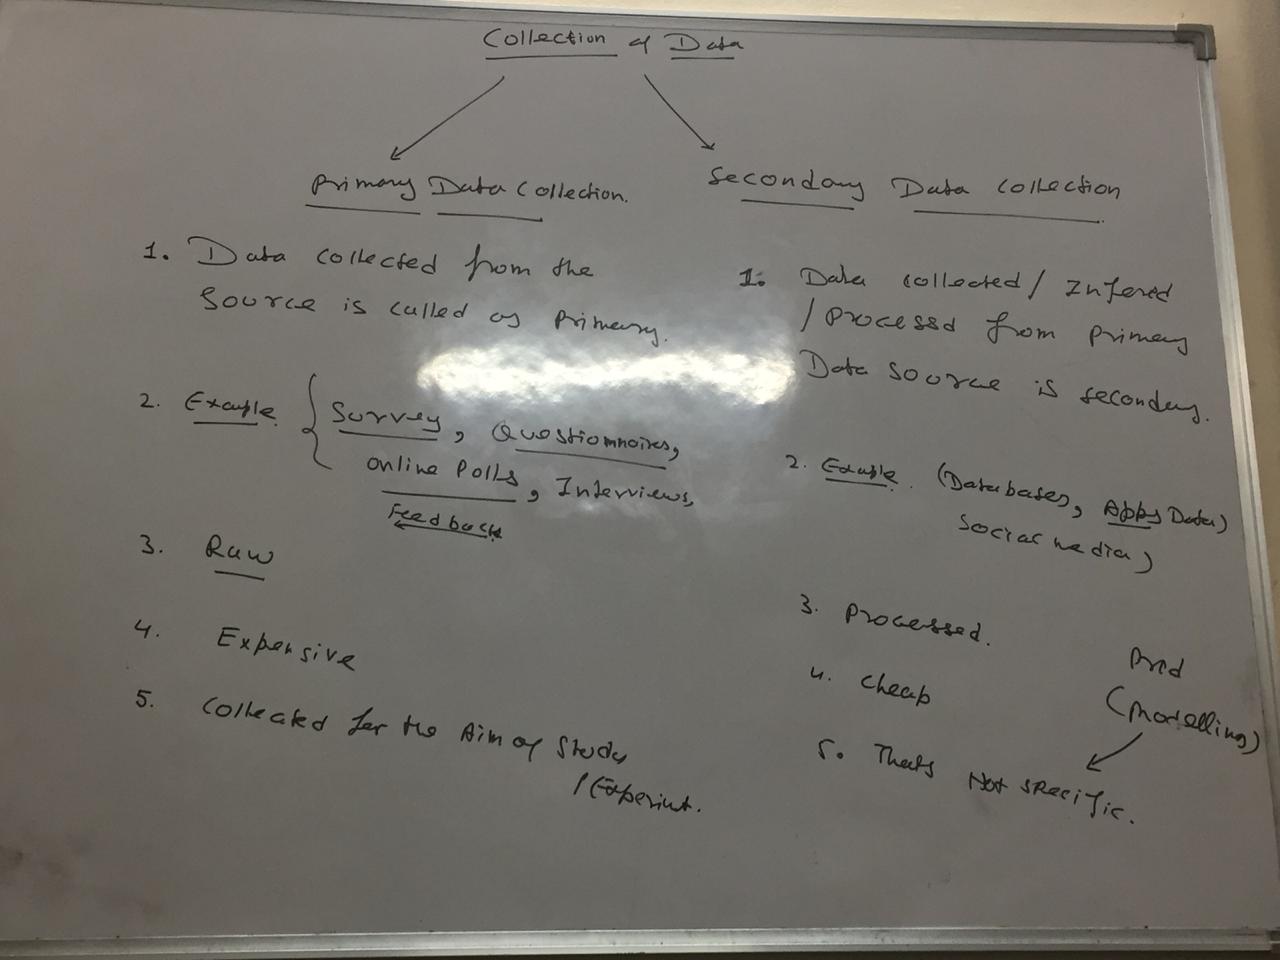 Collection of Data
Primary Data Collection.
1. Data collected from the
Source is called as Primary.
2. Example {Survey, Questionnoires,
online Polls, Interviews,
Feedback
3. Raw
4. Expensive
5. Colleated for the Aim of Study
/Experint.
Secondary Data Collection
1. Data collected / Infered
/ Processd from primary
Data Source is secondary.
2. Example. (Databases, Apps Data)
Social media)
3. Processed.
4. Cheap
5. Thats Not specific.
Pred
(modelling)